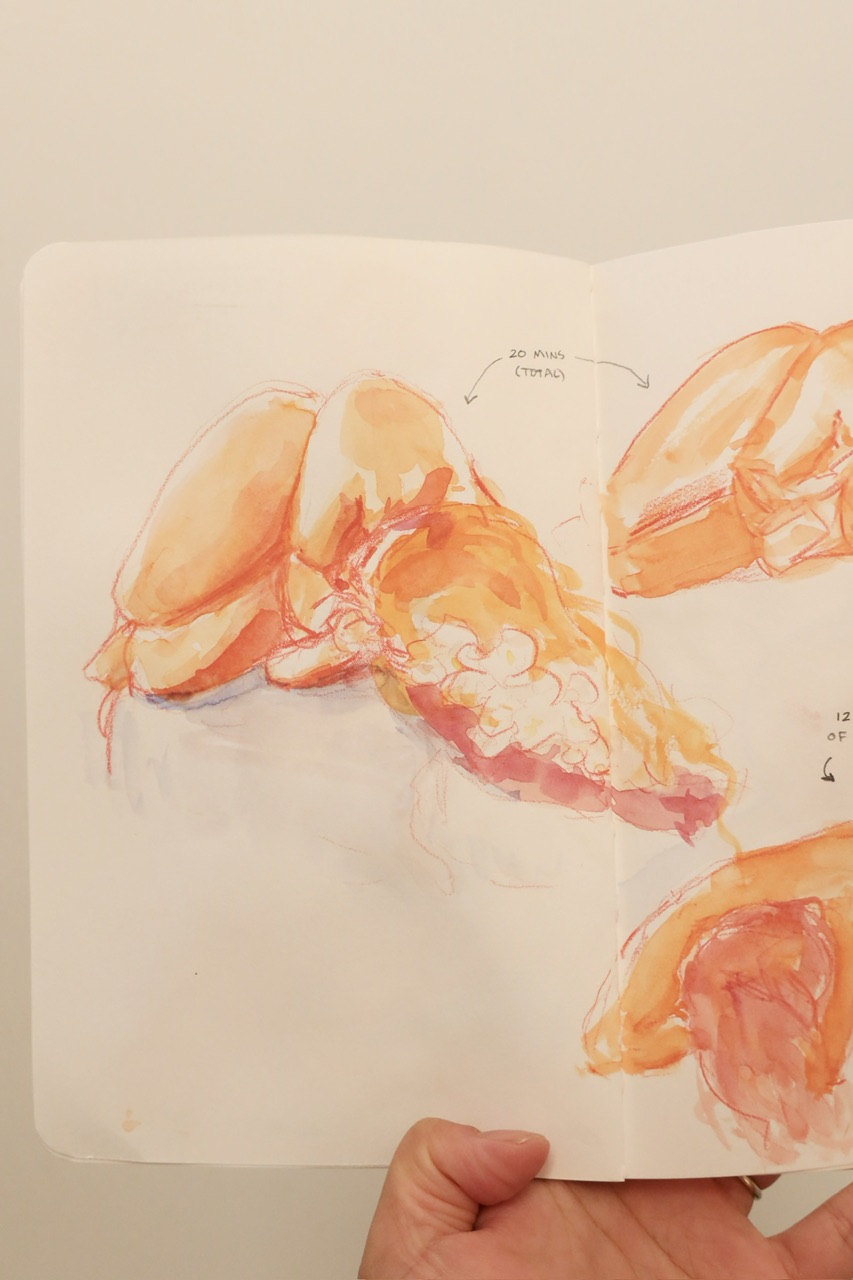 20 MINS
(TOTAL)
12
OF